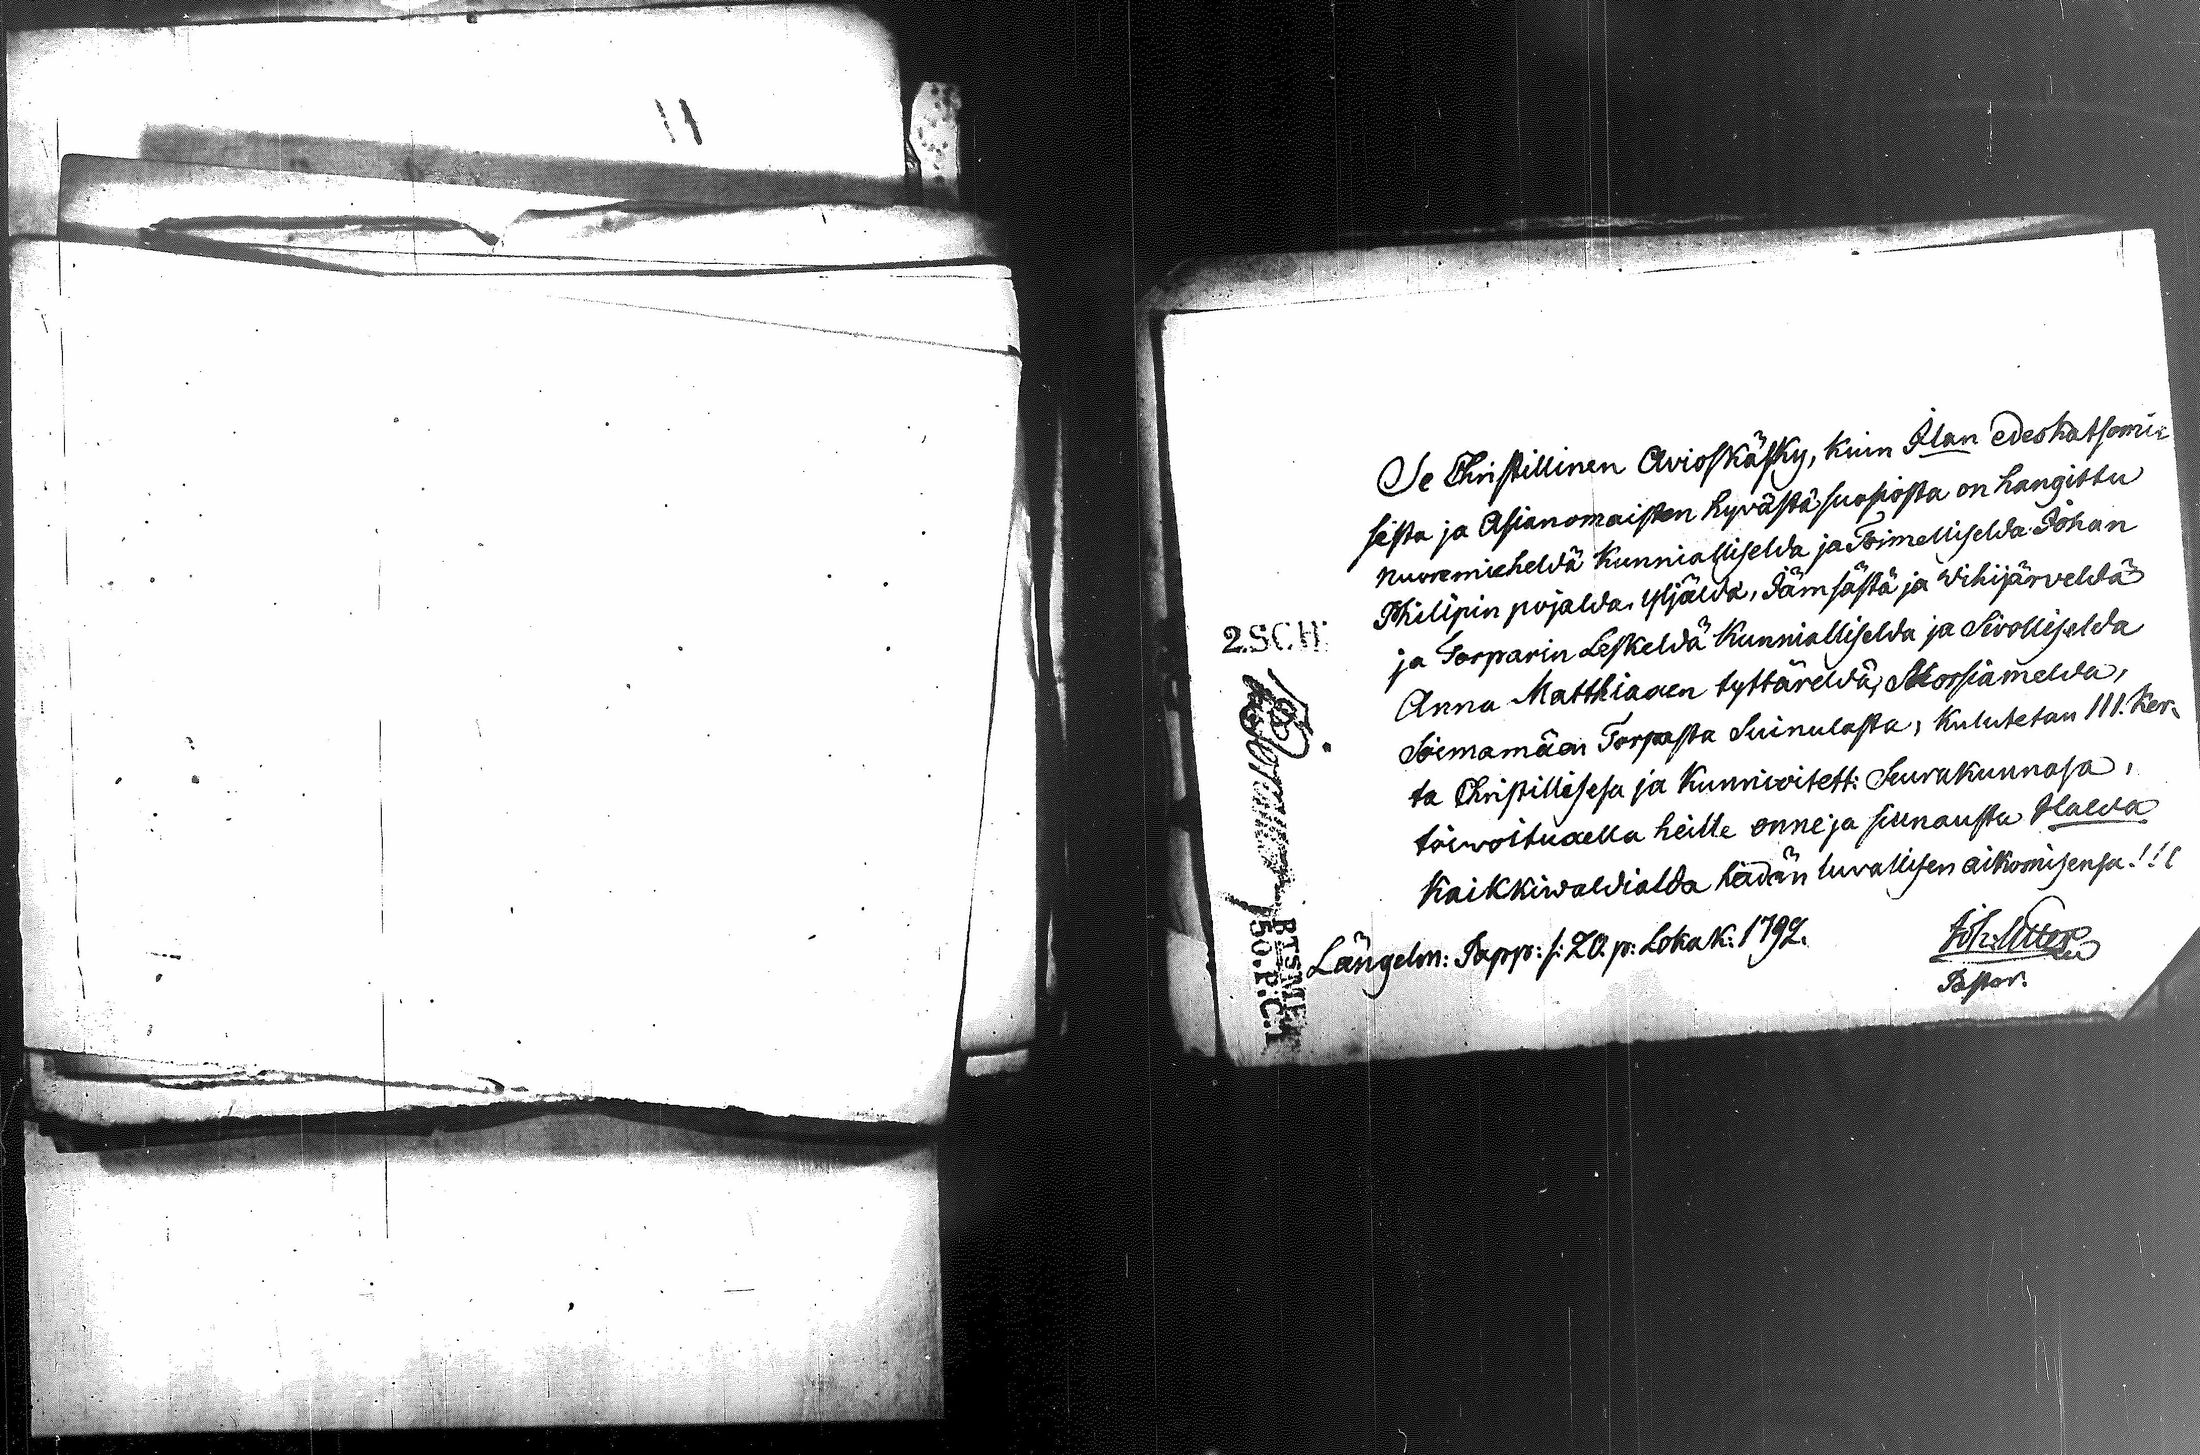 11
Se Christillinen Avioskäsky, kuin Ilan edeskatsomi-
sesta ja Asianomaisten hyvästä suosiosta on hangittu
nuoremieheldä Kunnialliselda ja Toimelliselda Johan
Philipin pojalda, Yljäldä, Jämsästä ja Wihijärveldä
ja Torparin Leskeldä Kunnialliselda ja Sivolliselda
Anna Matthiaaen tyttäreldä, Morsiamelda,
Soimamäen Torpasta Suinulasta, Kulutetan III. Ker-
ta Christillisesa ja Kunnivitett: Seurakunnasa,
toiwoituaella heille onne ja siunausta Ilalda
Kaikkiwaldialda heidän luvallisen aikomisensa!!!
Längelm: Papp: s: 20. p: Lokak: 1792.
Pastor.
2.SCH